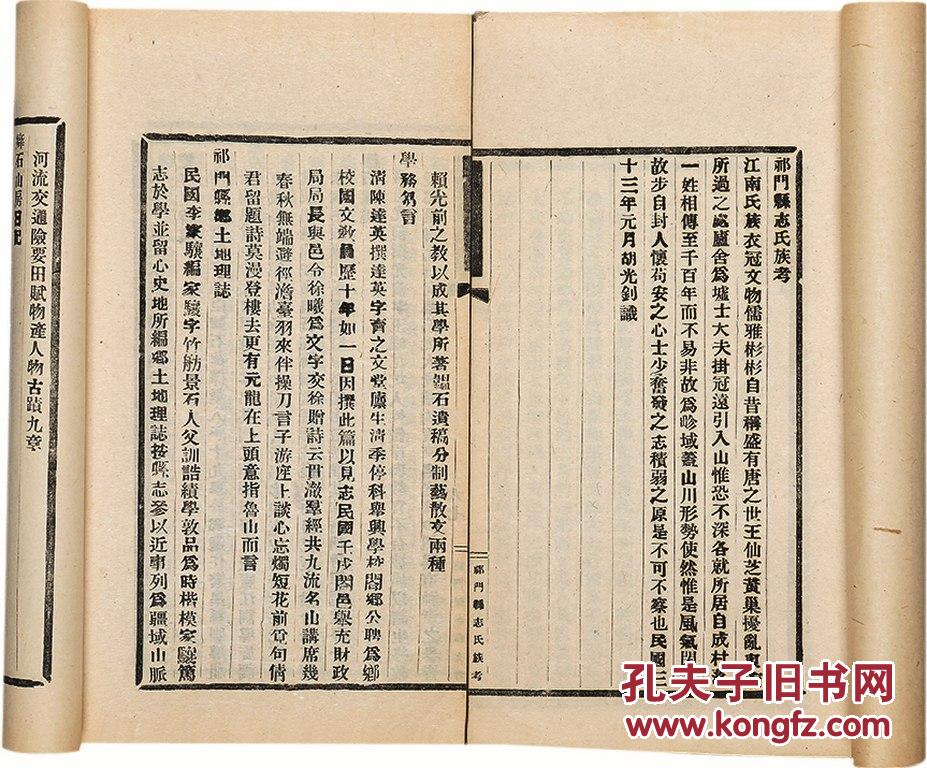 祁門縣志氏族考
江南氏族衣冠文物儒雅彬彬自昔稱盛有唐之世王仙芝黃巢擾亂
所過之處廬舍為墟士大夫掛冠遠引入山惟恐不深各就所居自成村
一姓相傳至千百年而不易非故為畛域蓋山川形勢使然惟是風氣閉
故步自封人懷苟安之心士少奮發之志積弱之原是不可不察也民國三
十三年元月胡光釗識
祁門縣志氏族考
賴光前之教以成其學所著韞石遺稿分制藝散文兩種
學務芻言
清陳達英撰達英字賣之文堂廩生清季停科舉興學校閤鄉公聘為鄉
校國文教員歷十年如一日因撰此篇以見志民國壬戌閤邑舉充財政
局局長與邑令徐曦為文字交徐贈詩云胥澈羣經共九流名山講席幾
春秋無端避徑澹臺羽來伴操刀言子游座上談心忘燭短花前覓句倩
君留題詩莫漫登樓去更有元龍在上頭意指魯山而言
祁門縣鄉土地理誌
民國李家驤編家驤字竹舫景石人父訓誥績學敦品為時楷模家驤篤
志於學並留心史地所編鄉土地理誌按縣志參以近事列為疆域山脈
河流交通險要田賦物產人物古蹟九章
石山房日記
孔夫子旧书网
www.kongfz.com